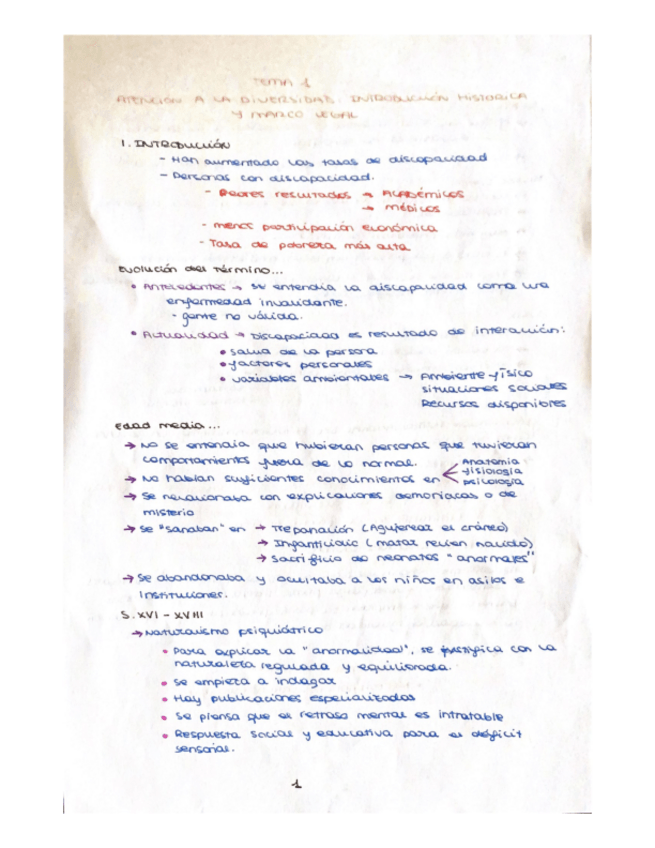 TEMA 1
ATENCIÓN A LA DIVERSIDAD. INTRODUCCIÓN HISTÓRICA
Y MARCO LEGAL
1. INTRODUCCIÓN
- Han aumentado las tasas de discapacidad
- Personas con discapacidad.
- Peores resultados → ACADÉMICOS
→ MÉDICOS
- menos participación económica
- Tasa de pobreza más alta
Evolución del término...
• Antecedentes → se entendía la discapacidad como una
enfermedad invalidante.
- gente no válida.
• Actualidad → Discapacidad es resultado de interacción:
• Salud de la persona
• factores personales
• variables ambientales → Ambiente físico
situaciones sociales
Recursos disponibles
Edad media...
→ No se entendía que hubieran personas que tuvieran
comportamientos fuera de lo normal.
→ No habían suficientes conocimientos en < Anatomía
fisiología
psicología
→ Se relacionaba con explicaciones demoníacas o de
misterio
→ Se "sanaban" en → Trepanación (Agujerear el cráneo)
→ Infanticidio (matar recien nacido)
→ Sacrificio de neonatos "anormales"
→ Se abandonaba y ocultaba a los niños en asilos e
Instituciones.
S. XVI - XVIII
→ Naturalismo psiquiátrico
• Para explicar la "anormalidad", se justifica con la
naturaleza regulada y equilibrada.
• Se empieza a indagar
• Hay publicaciones especializadas
• Se piensa que el retraso mental es intratable
• Respuesta social y educativa para el déficit
sensorial.
1